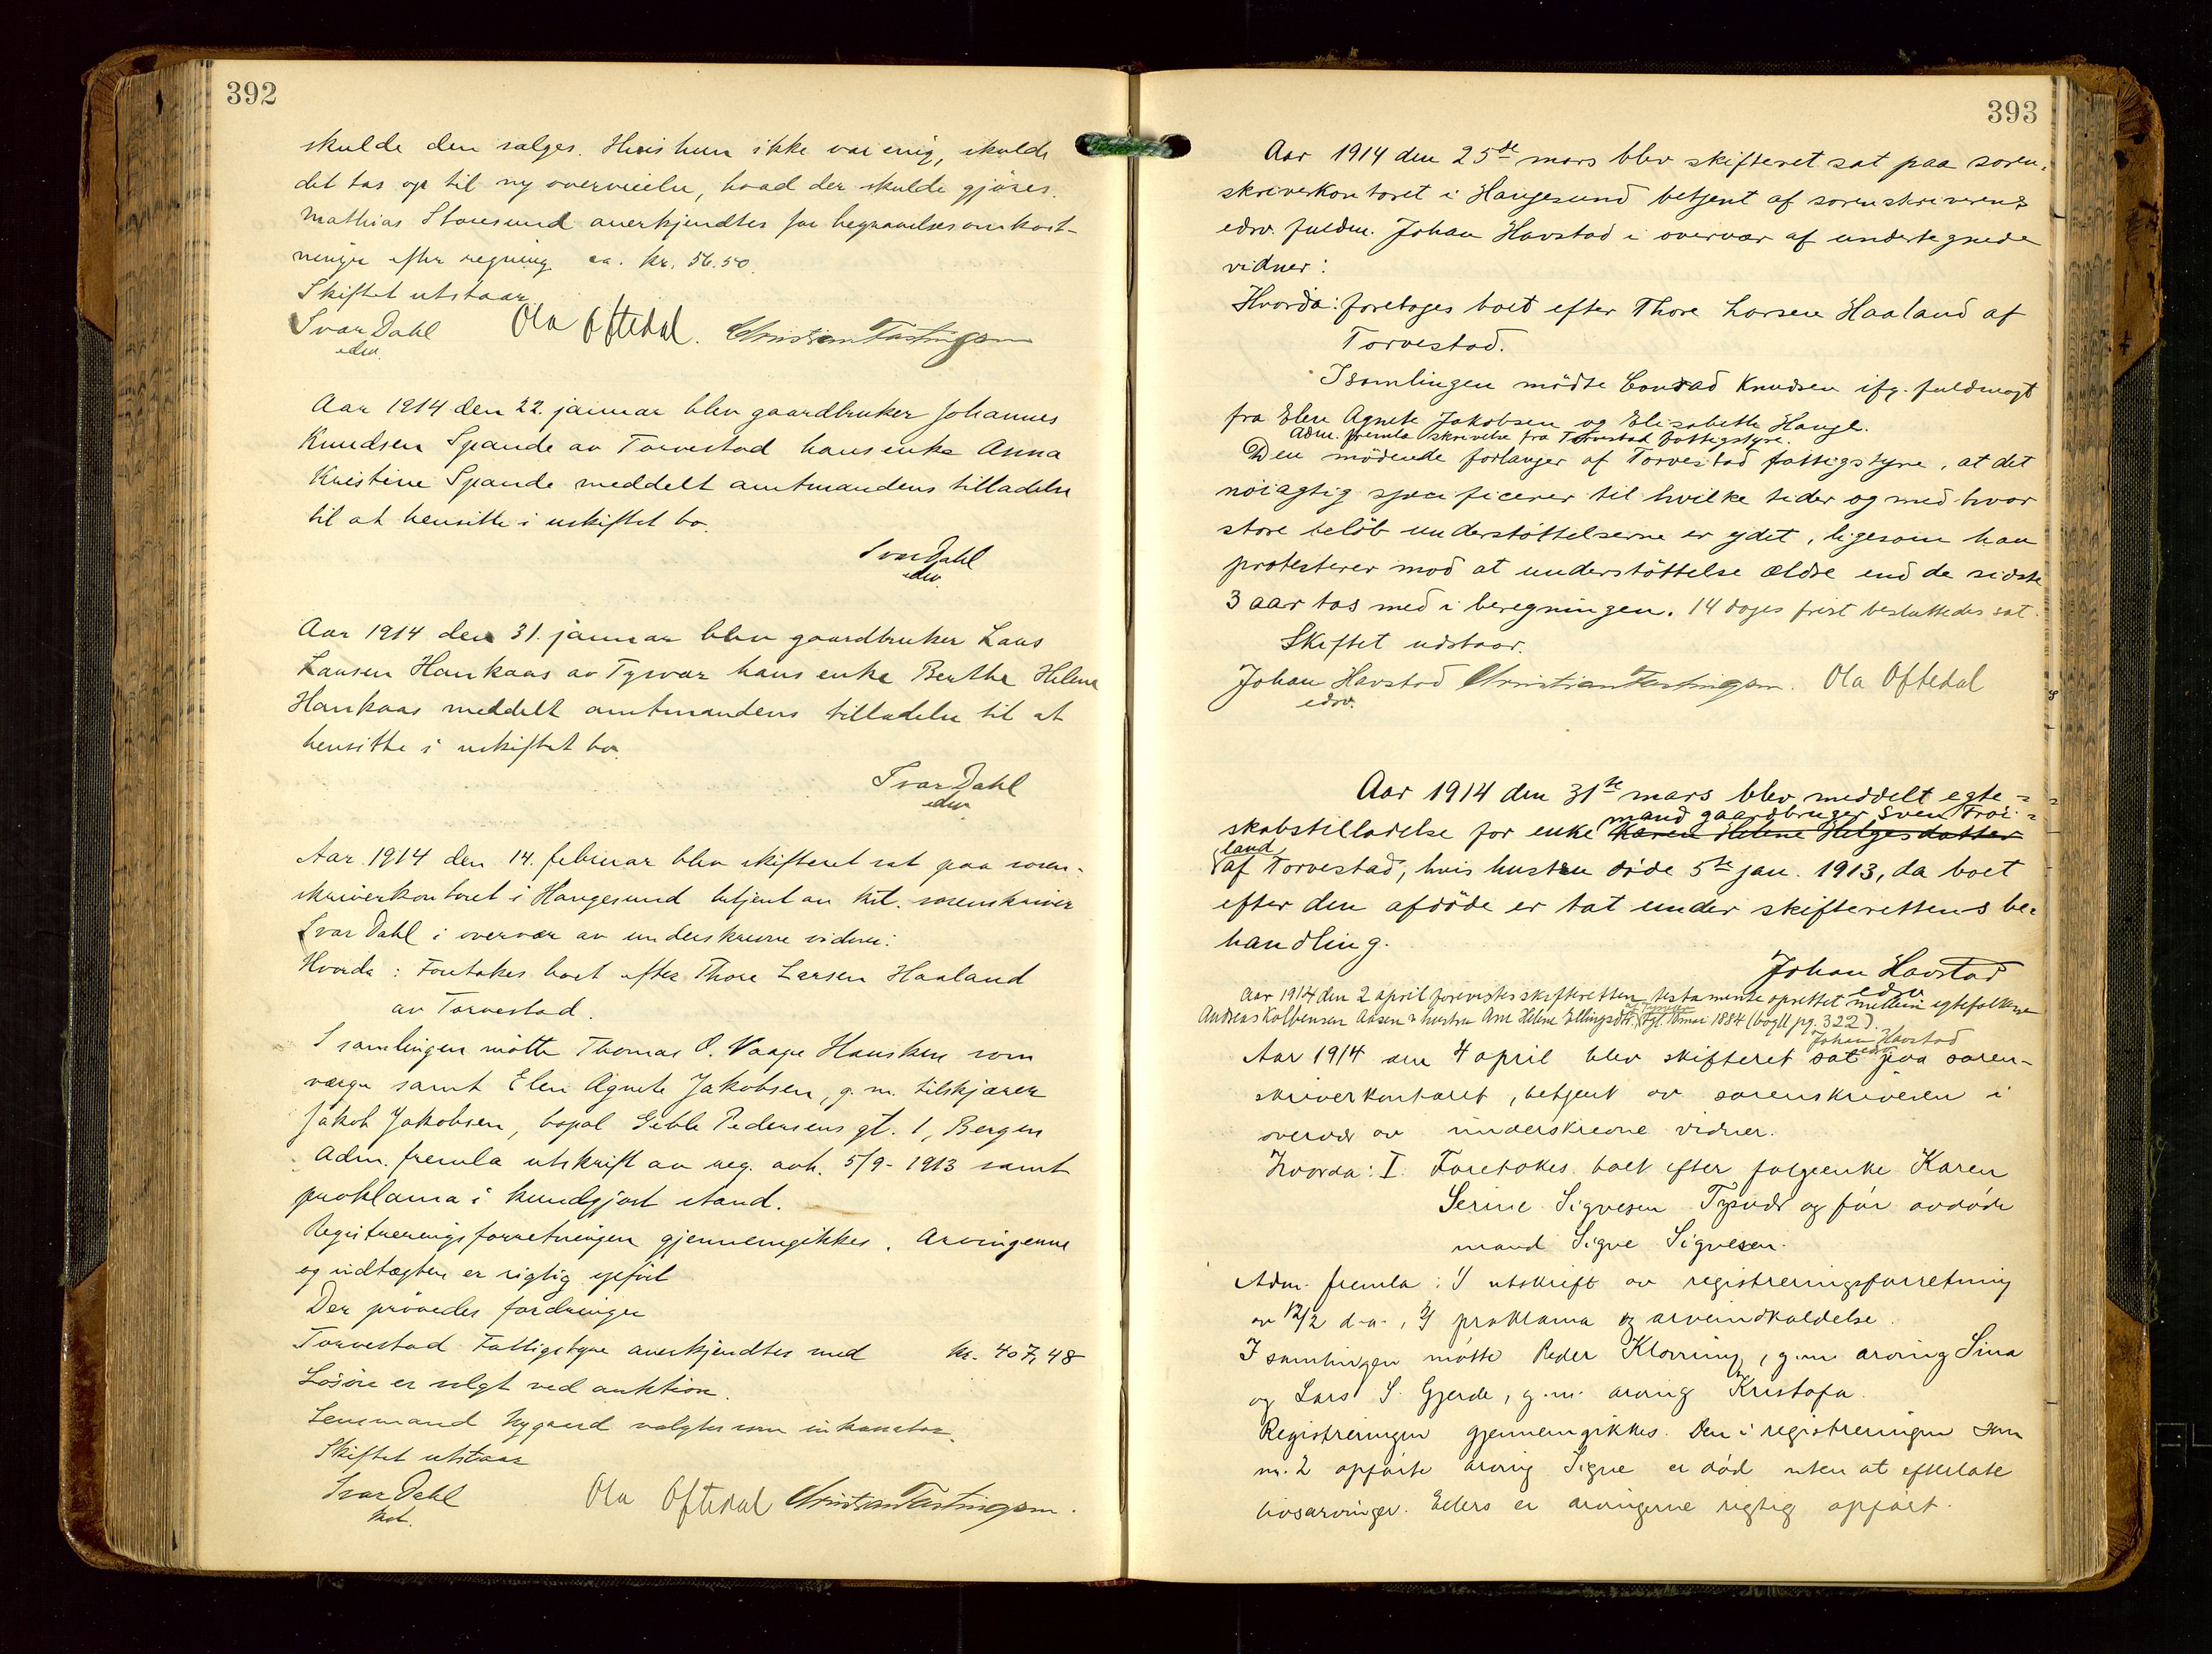 392
skulde den sælges. Hvis hun ikke var enig, skulde
det tas op til ny overveielse, hvad der skulde gjøres.
Mathias Storesund anerkjendtes for begravelsesomkost-
ninger efter regning ca. kr. 56.50.
Skiftet utstaar
Ivar Dahl Ola Oftedal. Christian Fastingsen
edsv.
Aar 1914 den 22. januar blev gaardbruker Johannes
Knudsen Spande av Torvestad hans enke Anna
Kristine Spande meddelt amtmandens tilladelse
til at hensitte i uskiftet bo.
Ivar Dahl
edsv.
Aar 1914 den 31. januar blev gaardbruker Laus
Lausen Haukaas av Tysvær hans enke Berthe Helene
Haukaas meddelt amtmandens tilladelse til at
hensitte i uskiftet bo.
Ivar Dahl
edsv
Aar 1914 den 14. februar blev skifteret sat paa soren-
skriverkontoret i Haugesund betjent av kst. sorenskriver
Ivar Dahl i overvær av underskrevne vidner:
Hvorda: Foretokes boet efter Thore Larsen Haaland
av Torvestad.
I samlingen møtte Thomas O. Vaage Hausken som
verge samt Elen Agnete Jakobsen, g. m. tilskjærer
Jakob Jakobsen, bopæl Geble Pedersens gt. 1, Bergen
Adm. fremla utskrift av reg. avh. 5/9-1913 samt
proklama i kundgjort stand.
Registreringsforretningen gjennemgikkes. Arvingerne
og indtægten er rigtig opført
Der prøvedes fordringer
Torvestad Fattigstyre anerkjendtes med kr. 407,48
Løsøre er solgt ved auktion.
Lensmand Nygaard valgtes som inkassator.
Skiftet utstaar
Ivar Dahl Ola Oftedal Christian Fastingsen.
kst.
393
Aar 1914 den 25de mars blev skifteret sat paa soren-
skriverkontoret i Haugesund betjent af sorenskriverens
edsv. fuldm. Johan Havstad i overvær af undertegnede
vidner:
Hvorda: foretoges boet efter Thore Larsen Haaland af
Torvestad.
I samlingen mödte Conrad Knudsen ifg. fuldmagt
fra Elen Agnete Jakobsen og Elisabeth Hauge.
Adm. fremla skrivelse fra Torvestad fattigstyre.
Den mödende forlanger af Torvestad fattigstyre, at det
nöiagtig specificerer til hvilke tider og med hvor
store belöb understöttelserne er ydet, ligesom han
protesterer mod at understöttelse ældre end de sidste
3 aar tas med i beregningen. 14 dages frist besluttedes sat.
Skiftet udstaar.
Johan Havstad Christian Fastingsen. Ola Oftedal
edsv.
Aar 1914 den 31te mars blev meddelt egte-
mand gaardbruger Sven Frøi-
skabstilladelse for enke Karen Helene Helgesdatter
land
af Torvestad, hvis hustru döde 5te jan. 1913, da boet
efter den afdöde er tat under skifterettens be-
handling.
Johan Havstad
edsv
Aar 1914 den 2 april forevistes skifteretten testamente oprettet mellem egtefolkene
Andreas Kolbensen Aasen & hustru Ane Helene Ellingsdtr. tgl. 10 mai 1884 (bog11 pg. 322).
Johan Havstad
edsv
Aar 1914 den 4 april blev skifteret sat paa soren-
skriverkontoret, betjent av sorenskriveren i
overvær av underskrevne vidner.
Hvorda: I. Foretokes boet efter følgeenke Karen
Serine Sigvesen Tysvær og før avdøde
mand Sigve Sigvesen.
Adm. fremla: 1/ utskrift av registreringsforretning
av 12/2 d.a., 2/ proklama og arveindkaldelse.
I samlingen møtte Peder Klovning, g.m. arving Sina
og Lars S. Gjerde, g.m. arving Kristofa.
Registreringen gjennemgikkes. Den i registreringen som
nr. 2 opførte arving Sigve er død uten at efterlate
livsarvinger. Ellers er arvingerne rigtig opført.